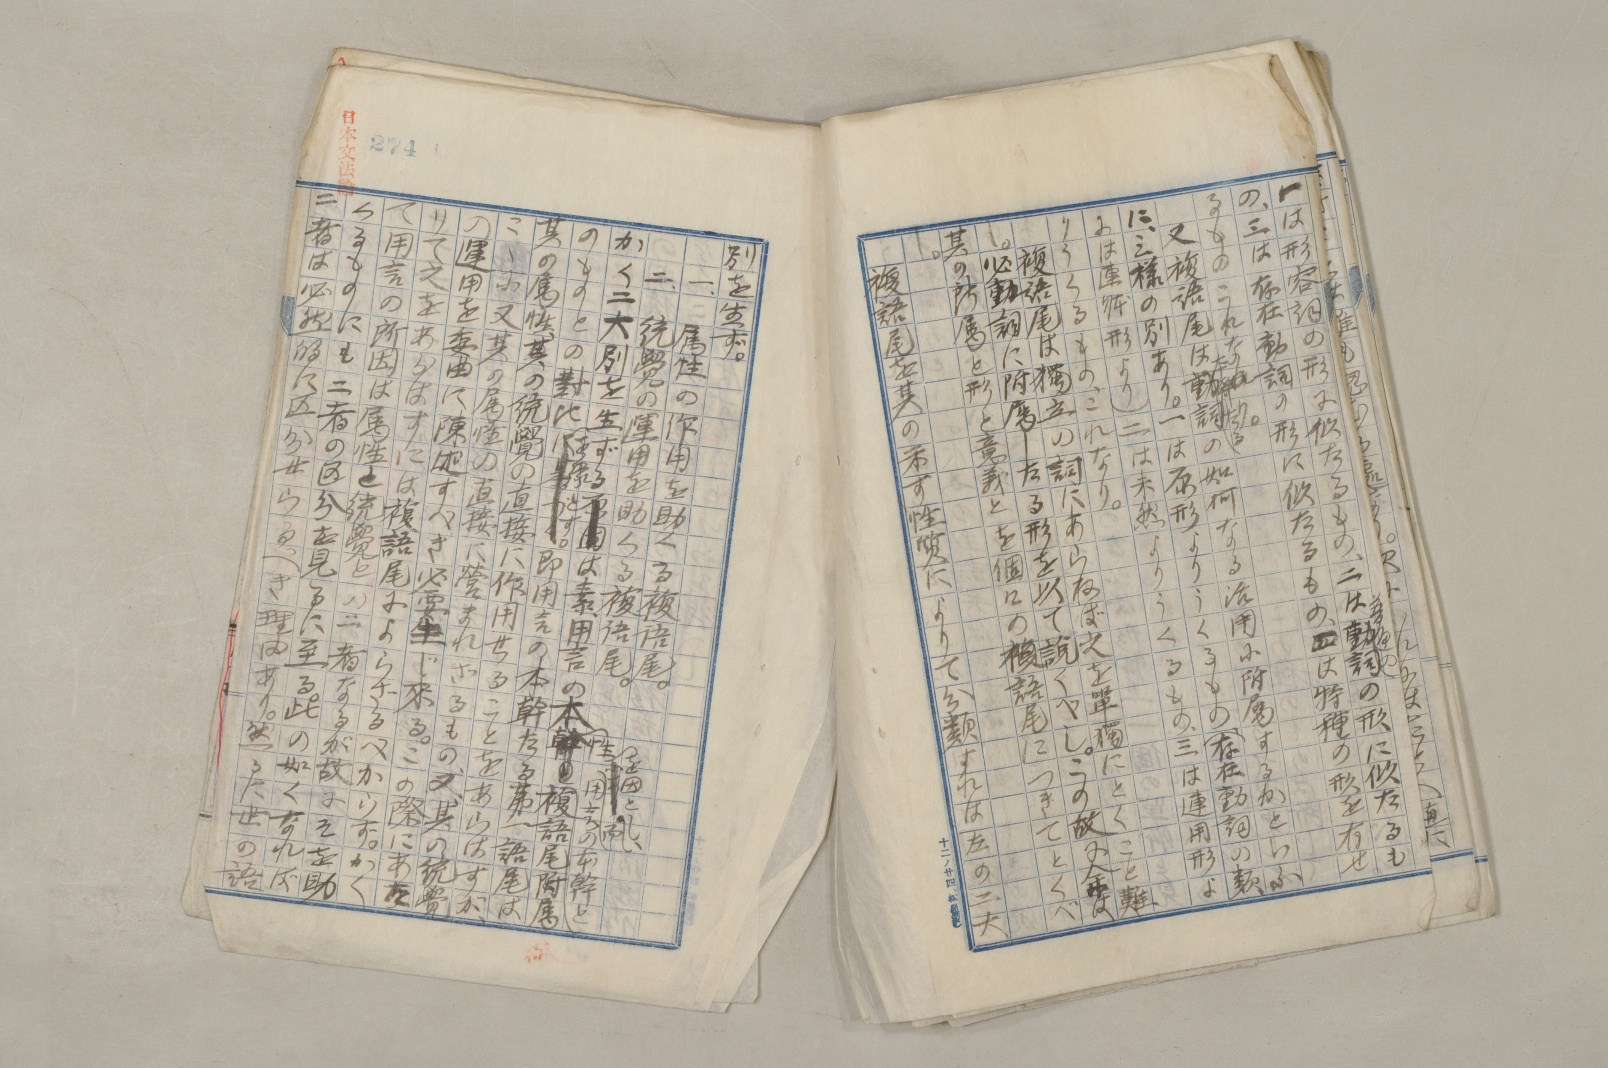 一は形容詞の形に似たるもの、二は動詞の形に似たるも
の、三は存在動詞の形に似たるもの、四は特種の形を有せ
るものこれなり。
又複語尾は動詞の如何なる活用に附属するかといふ
に、三様の別あり。一は原形よりうくるもの(存在動詞の類
には連体形より)二は未然よりうくるもの、三は連用形よ
りうくるもの、これなり。
複語尾は独立の詞にあらねば之を単独にとくこと難
し。必動詞に附属したる形を以て説くべし。この故に今は
其の所属と形と意義とを個々の複語尾につきてとくべ
し。
複語尾を其の示す性質によりて分類すれば左の二大
日本文法論
274
別を生ず。
一、属性の作用を助くる複語尾。
二、統覚の運用を助くる複語尾。
かく二大別を生ずる は素、用言の本幹
のものとの対比に 即用言の本幹たる第一語尾は
其の属性、其の統覚の直接に作用せることをあらはすが、
こゝに又其の属性の直接に営まれざるもの、又其の統覚
の運用を委曲に陳述すべき必要生じ来る。この際にあた
りて之をあらはすには複語尾によらざるべからず。かく
て用言の所因は属性と統覚との二者なるが故にそを助
くるものにも二者の区分を見るに至る。此の如くなれば
二者は必然的に区分せらるべき理由あり。然るに世の語